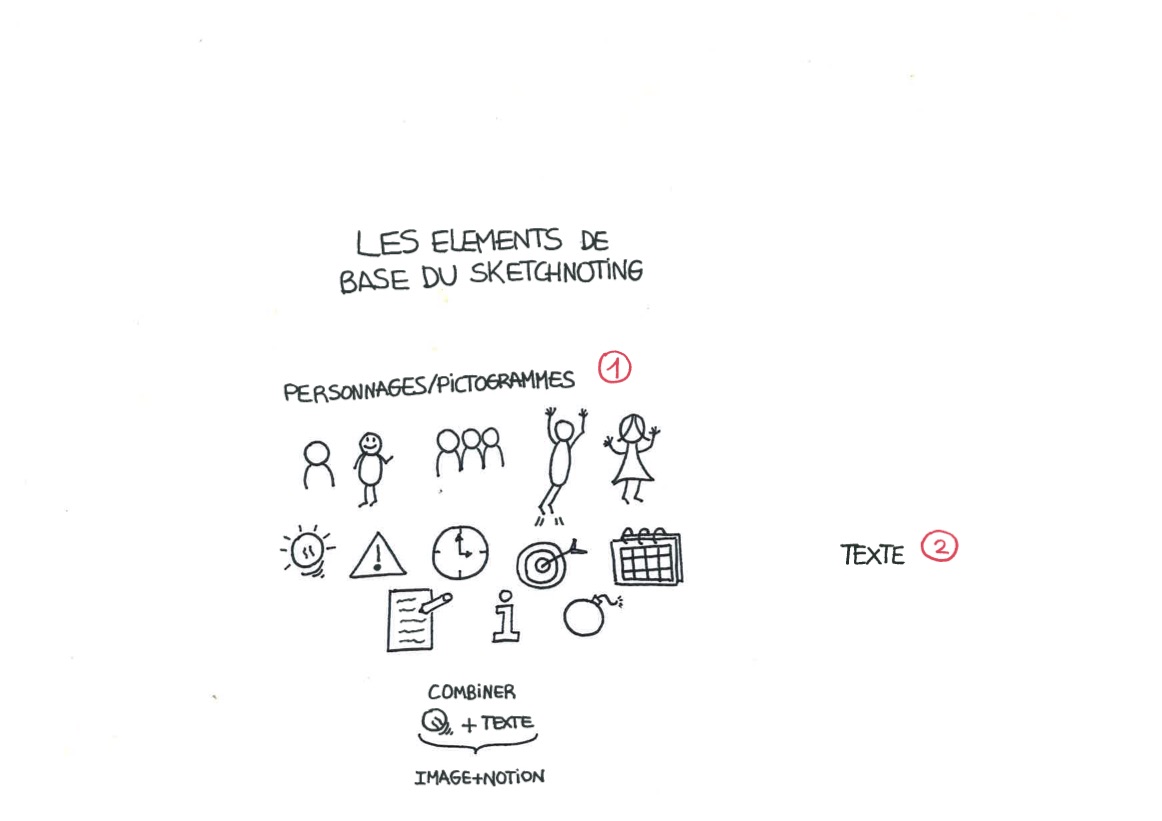 LES ELEMENTS DE
BASE DU SKETCHNOTING
PERSONNAGES/PICTOGRAMMES 1
TEXTE 2
COMBINER
+ TEXTE
IMAGE+NOTION